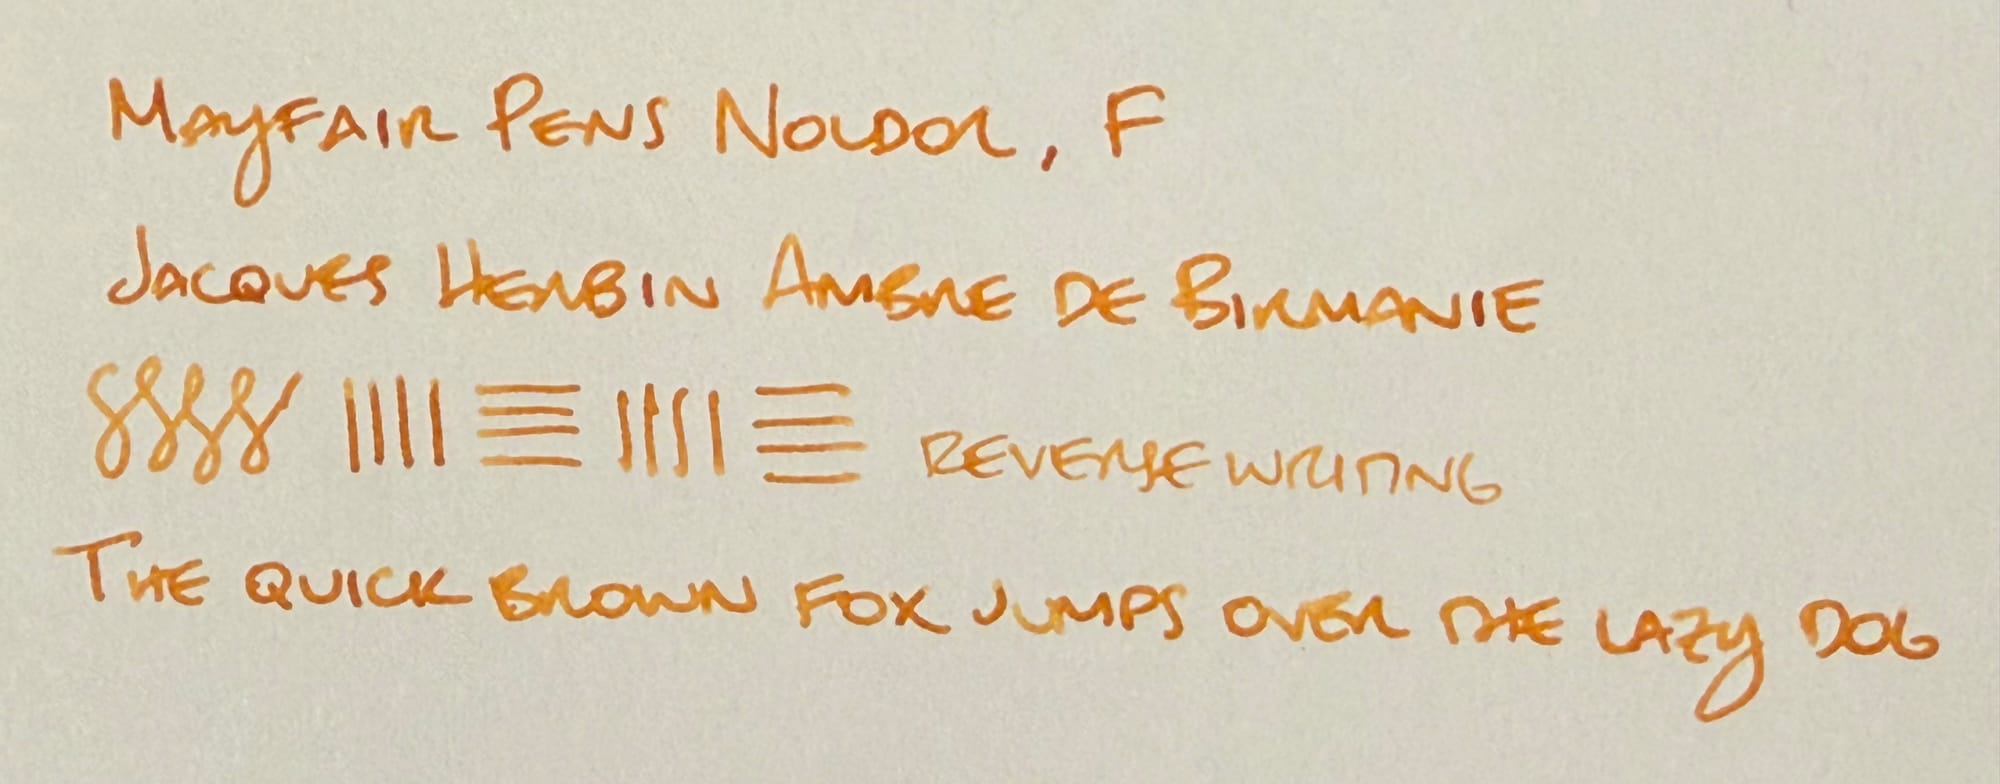 Mayfair Pens Noldor, F
Jacques Herbin Ambre de Birmanie
Reverse writing
The quick brown fox jumps over the lazy dog